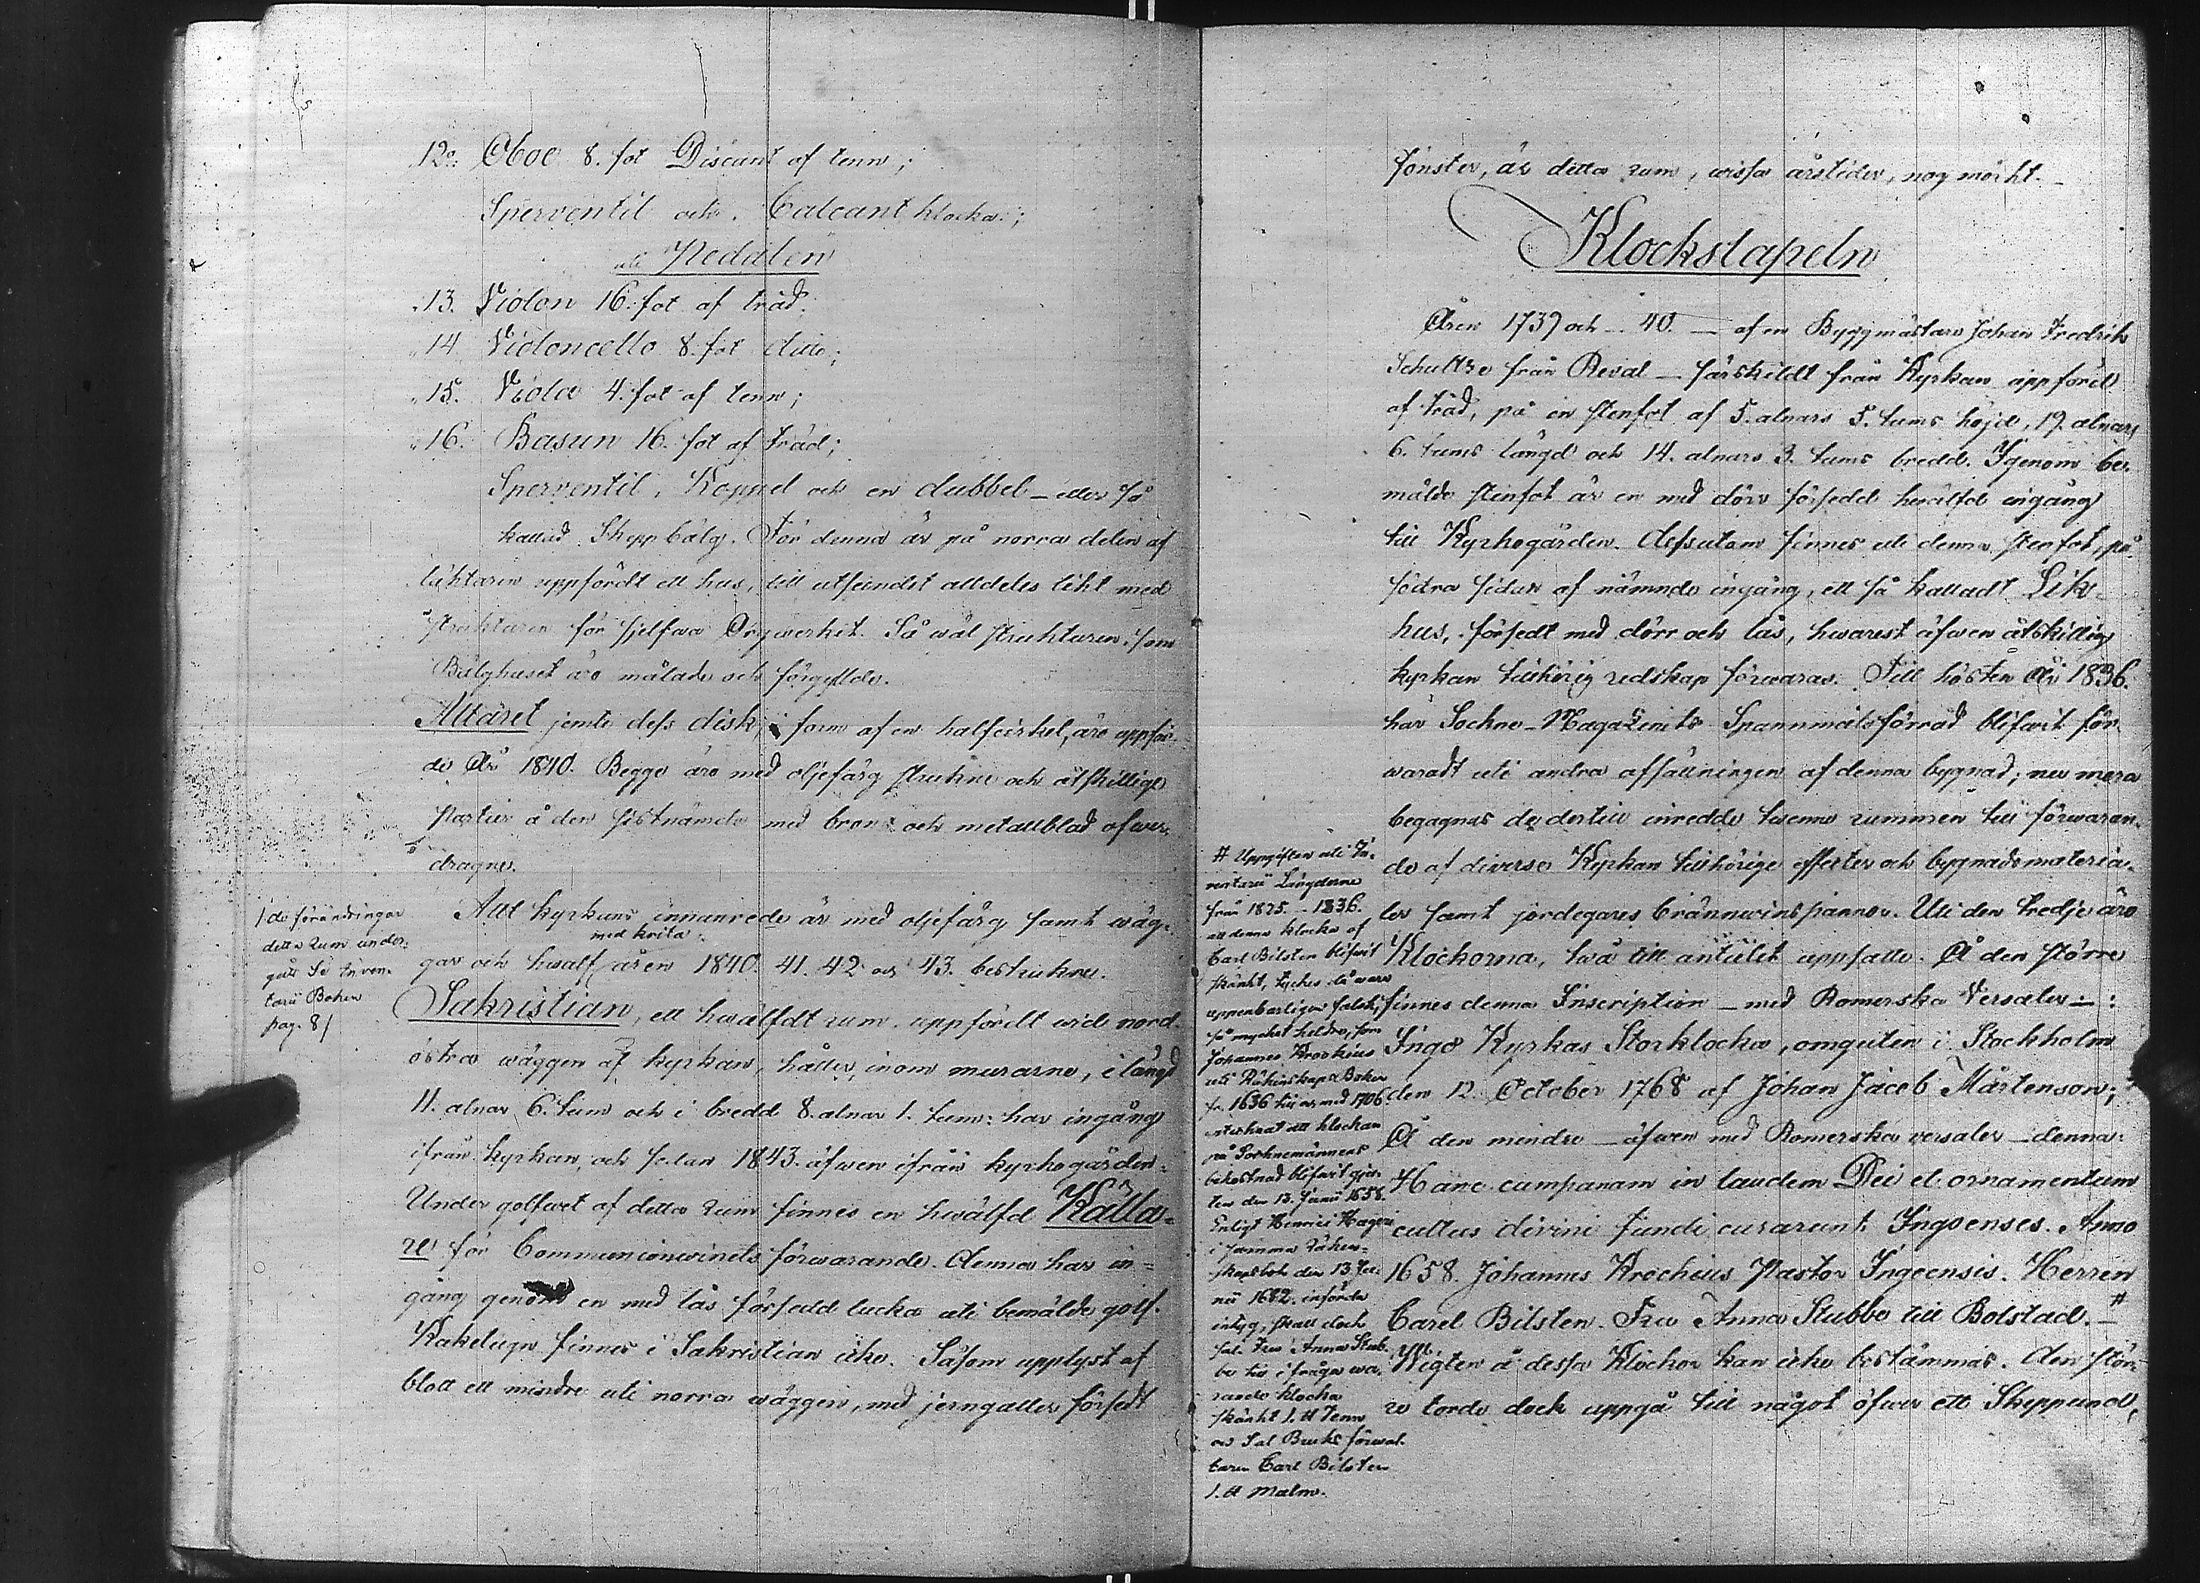 12o. Oboe 8. fot Discant af tenn;
Sperventil och Calcant klocka;
uti Pedalen
13. Violon 16. fot af träd.
14 Violoncello 8. fot ditto;
15. Viola 4. fot af tenn;
16. Basun 16. fot af träd;
Sperventil, Koppel och en dubbel – eller så
kallad Skeppbälg. För denna är på norra delen af
läktaren uppfördt ett hus, till utseendet alldeles likt med
strukturen för sjelfva Orgverket. Så wäl strukturen som
Bälghuset äro målade och förgyllde.
Altaret jemte dess disk, i form af en halfcirkel, äro uppför-
de År 1840. Begge äro med oljefärg strukne och åtskillige
Partier å den sistnämde med brons och metallblad öfwer-
dragne.
Allt kyrkans innanrede är med oljefärg samt wäg-
med krita
gar och hwalf åren 1840. 41. 42 och 43. bestrukne.
Sakristian, ett hwälfdt rum, uppfördt wid nord-
östra wäggen af kyrkan, håller, inom murarne, i längd
11. alnar 6. tum och i bredd 8. alnar 1. tum: har ingång
ifrån kyrkan, och sedan 1843. äfwen ifrån kyrkogården.
Under golfwet af detta rum finnes en hwälfd Källa-
re för Communionwinets förwarande. Denna har in-
gång genom en med lås försedd lucka uti bemälde golf.
Kakelugn finnes i Sakristian icke. Såsom upplyst af
blott ett mindre uti norra wäggen, med jerngaller försedt
/de förändringar
detta rum under-
gått Se Inven-
tarii Boken
pag. 8/
fönster, är detta rum, wissa årstider, nog mörkt.
Klockstapeln
Åren 1739 och – 40. – af en Byggmästare Johan Fredrik
Schultze från Reval – särskildt från Kyrkan uppförd
af träd, på en stenfot af 5. alnars 5. tums höjd, 19. alnars
6. tums längd och 14. alnars 3. tums bredd. Igenom be-
mälde stenfot är en med dörr försedd hwälfd ingång
till Kyrkogården. Dessutom finnes uti denna stenfot, på
södra sidan af nämnde ingång, ett så kalladt Lik-
hus, försedt med dörr och lås, hwarest äfwen åtskillig
kyrkan tillhörig redskap förwaras. Till hösten År 1836.
har Sockne-Magazinets Spannmålsförråd blifwit för-
waradt uti andra afsattningen af denna bygnad; nu mera
begagnas de dertill inredde twenne rummen till förwaran-
de af diverse Kyrkan tillhörige effecter och bygnadsmateria-
ler samt jordegares bränwinspannor. Uti den tredje äro
Klockorna, två till antalet uppsatte. Å den större
finnes denna Inscription – med Romerska Versaler –:
Ingå Kyrkas Storklocka, omguten i Stockholm
den 12. October 1768 af Johan Jacob Mårtenson;
Å den mindre – äfwen med Romerska versaler – denna:
Hanc campanam in laudem Dei et ornamentum
cultus divini fundi curarunt Ingoenses. Anno
1658. Johannes Krockius Pastor Ingoensis. Herren
Carel Bilsten. Fru Anna Stubbe till Bolstad. – #
Wigten å dessa Klockor kan icke bestämmas. Den stör-
re torde dock uppgå till något öfwer ett Skeppund,
# Uppgiften uti In-
ventarii Längderne
från 1825. – 1836.
att denna klocka af
Carl Bilsten blifwit
skänkt, tyckes så wara
uppenbarligen falsk,
så mycket heldre, som
Johannes Krockius
uti Räkenskaps Boken
fr. 1636 till och med 1706
antecknat att klockan
på Socknemännens
bekostnad blifwit gju-
ten den 13. Junii 1658.
Enligt Henrici Hageri
i samma Räken-
skapsbok den 13. Ju-
nii 1682. införde
intyg, skall dock
sal. Fru Anna Stub-
be till i fråga wa-
rande klocka
skänkt 1. ℔ Tenn
och Sal Bruks förwal-
taren Carl Bilsten
1. ℔ malm.